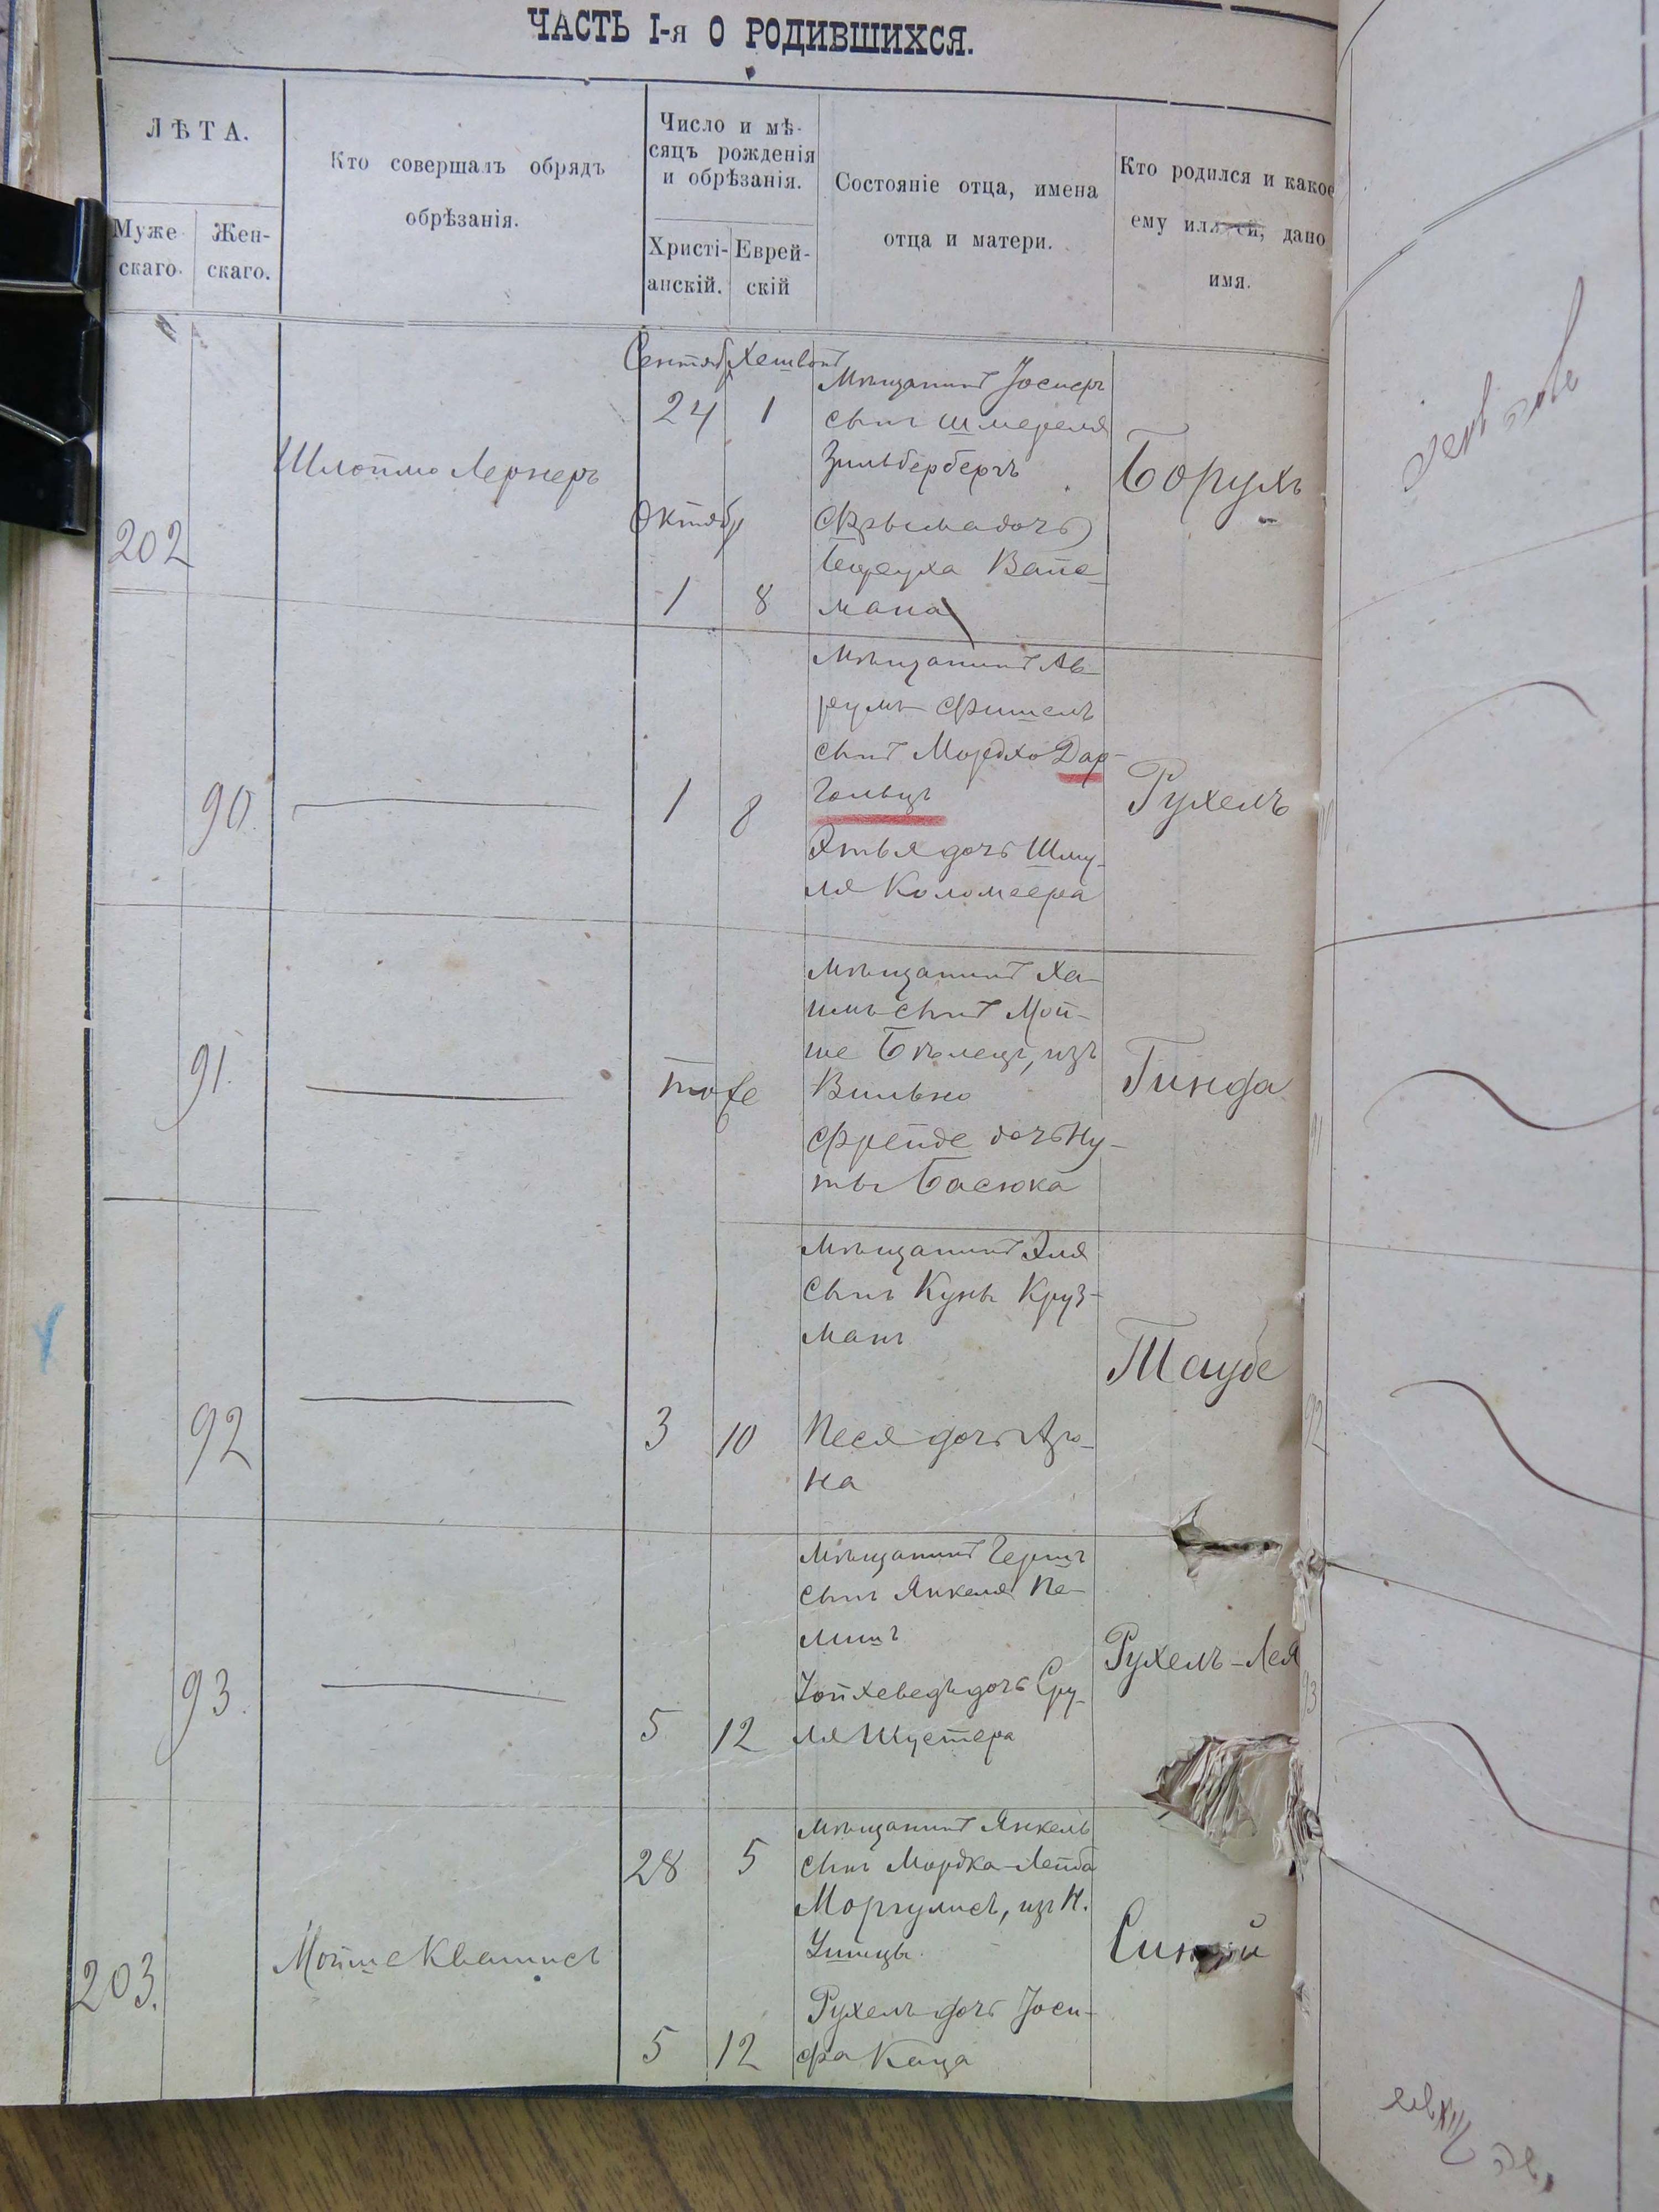 ЧАСТЬ I-я О РОДИВШИХСЯ.
ЛѢТА.
Муже-
скаго.
Жен-
скаго.
Кто совершалъ обрядъ
обрѣзанія.
Число и мѣ-
сяцъ рожденія
и обрѣзанія.
Христі-
анскій.
Еврей-
скій
Состояніе отца, имена
отца и матери.
Кто родился и какое
ему или ей, дано
имя.
202
Шлоймо Лернеръ
Сентяб Хешвонъ
24 1
Октяб
1 8
Мѣщанинъ Іосифъ
сынъ Шмереля
Зильберберъ
Фрыма дочь
Вайс-
мана
Борухъ
90.
1 8
Мѣщанинъ Ав-
румъ Фишель
сынъ Мордхо Дар-
гольцъ
Этья дочь Шму-
ля Коломеера
Рухель
91.
тоже
Мѣщанинъ Ха-
имъ сынъ Мой-
ше Бѣлецъ, изъ
Вильно
Фрейде дочь Ну-
ты Басюка
Гинда
92
3 10
Мѣщанинъ Эля
сынъ Куны Круз-
манъ
Песя дочь Аро-
на
Таубе
93.
5 12
Мѣщанинъ Гершъ
сынъ Янкеля Пе-
лишъ
Іойхеведъ дочь Сру-
ля Шустера
Рухель-Лея
203.
Мойше Квашисъ
28 5
5 12
Мѣщанинъ Янкель
сынъ Мордка-Лейба
Моргулисъ, изъ Н.
Ушицы.
Рухель дочь Іоси-
фа Каца
92
93